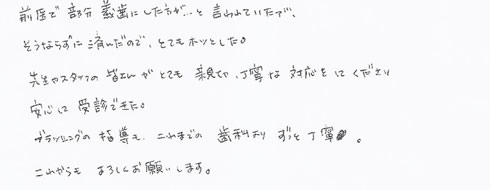 前医で部分義歯にした方が…と言われていたが、
そうならずに済んだので、とてもホッとした。
先生やスタッフの皆さんがとても親切、丁寧な対応をしてくださり
安心して受診できた。
ブラッシングの指導も、これまでの歯科よりずっと丁寧。
これからもよろしくお願いします。